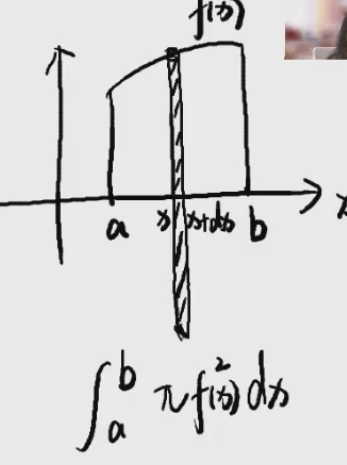 f(x)
a x x+dx b x
∫_a^b π f²(x) dx